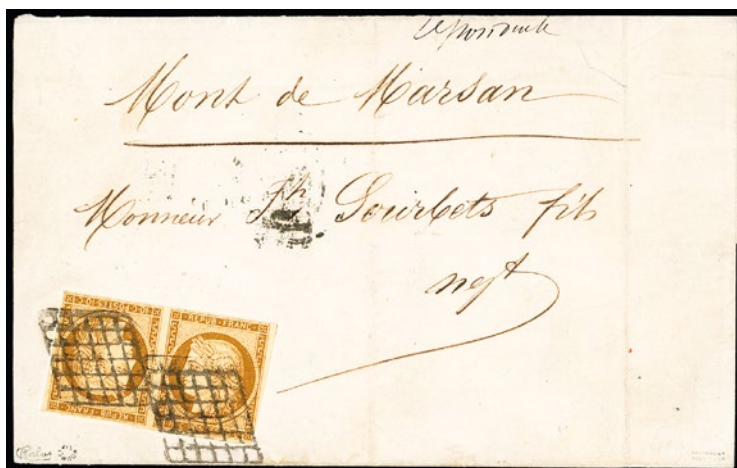 Mont de Marsan
Monsieur Jh Sourbets fils
negt
10·C·POSTES·10·C
REPUB·FRANC
REPUB·FRANC
Calves